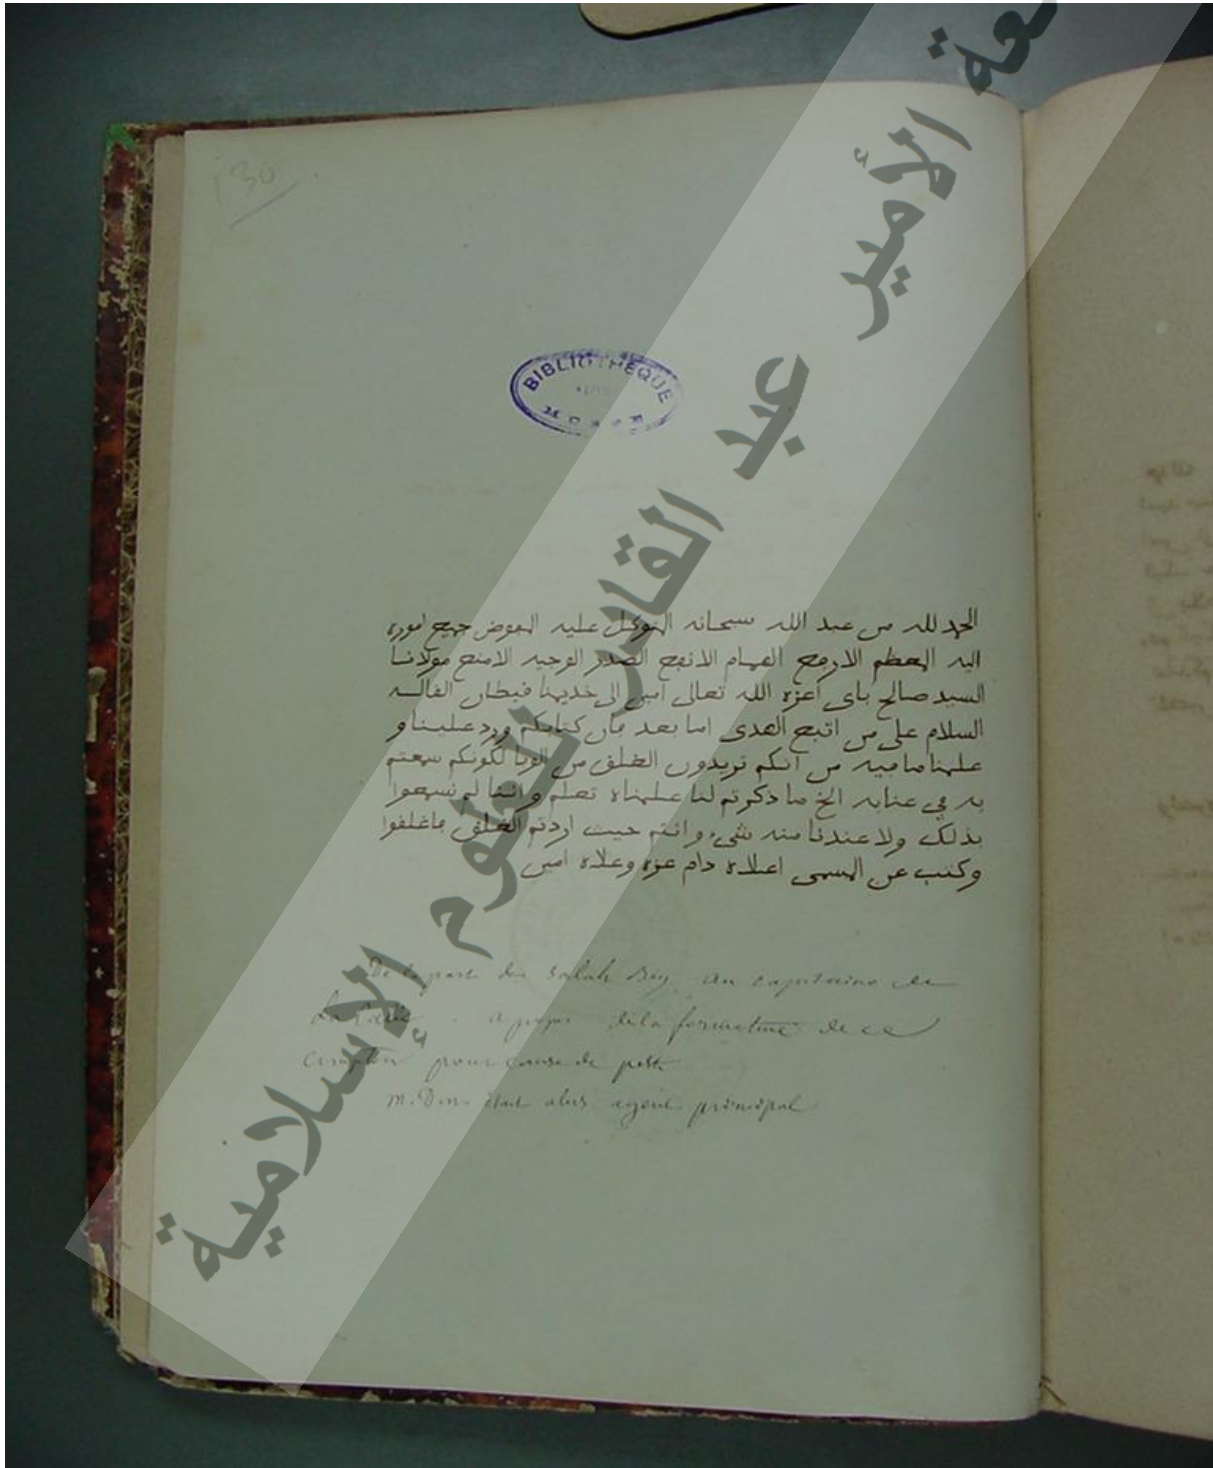 130
BIBLIOTHEQUE
الحمد لله من عبد الله سبحانه المتوكل عليه المفوض جميع اموره
اليه المعظم الارفع الهمام الانفع الصدر الوجيه الامنع مولانا
السيد صالح باى اعزه الله تعالى امين الى خديمنا فبطان القالـه
السلام على من اتبع الهدى اما بعد فان كتابكم ورد علينا و
علمنا ما فيه من انكم تريدون الغلق من الوبا لكونكم سمعتم
به في عنابه الخ ما ذكرتم لنا علمناه تعلم واننا لم نسمعوا
بذلك ولا عندنا منه شيء وانتم حيث اردتم الغلق فاغلقوا
وكتب عن المسمى اعلاه دام عزه وعلاه امين
De la part de Salah Bey au capitaine de
La Calle. a propos de la fermeture de ce
comptoir pour cause de peste
M. était alors agent principal
الأمير عبد القادر للعلوم الإسلامية